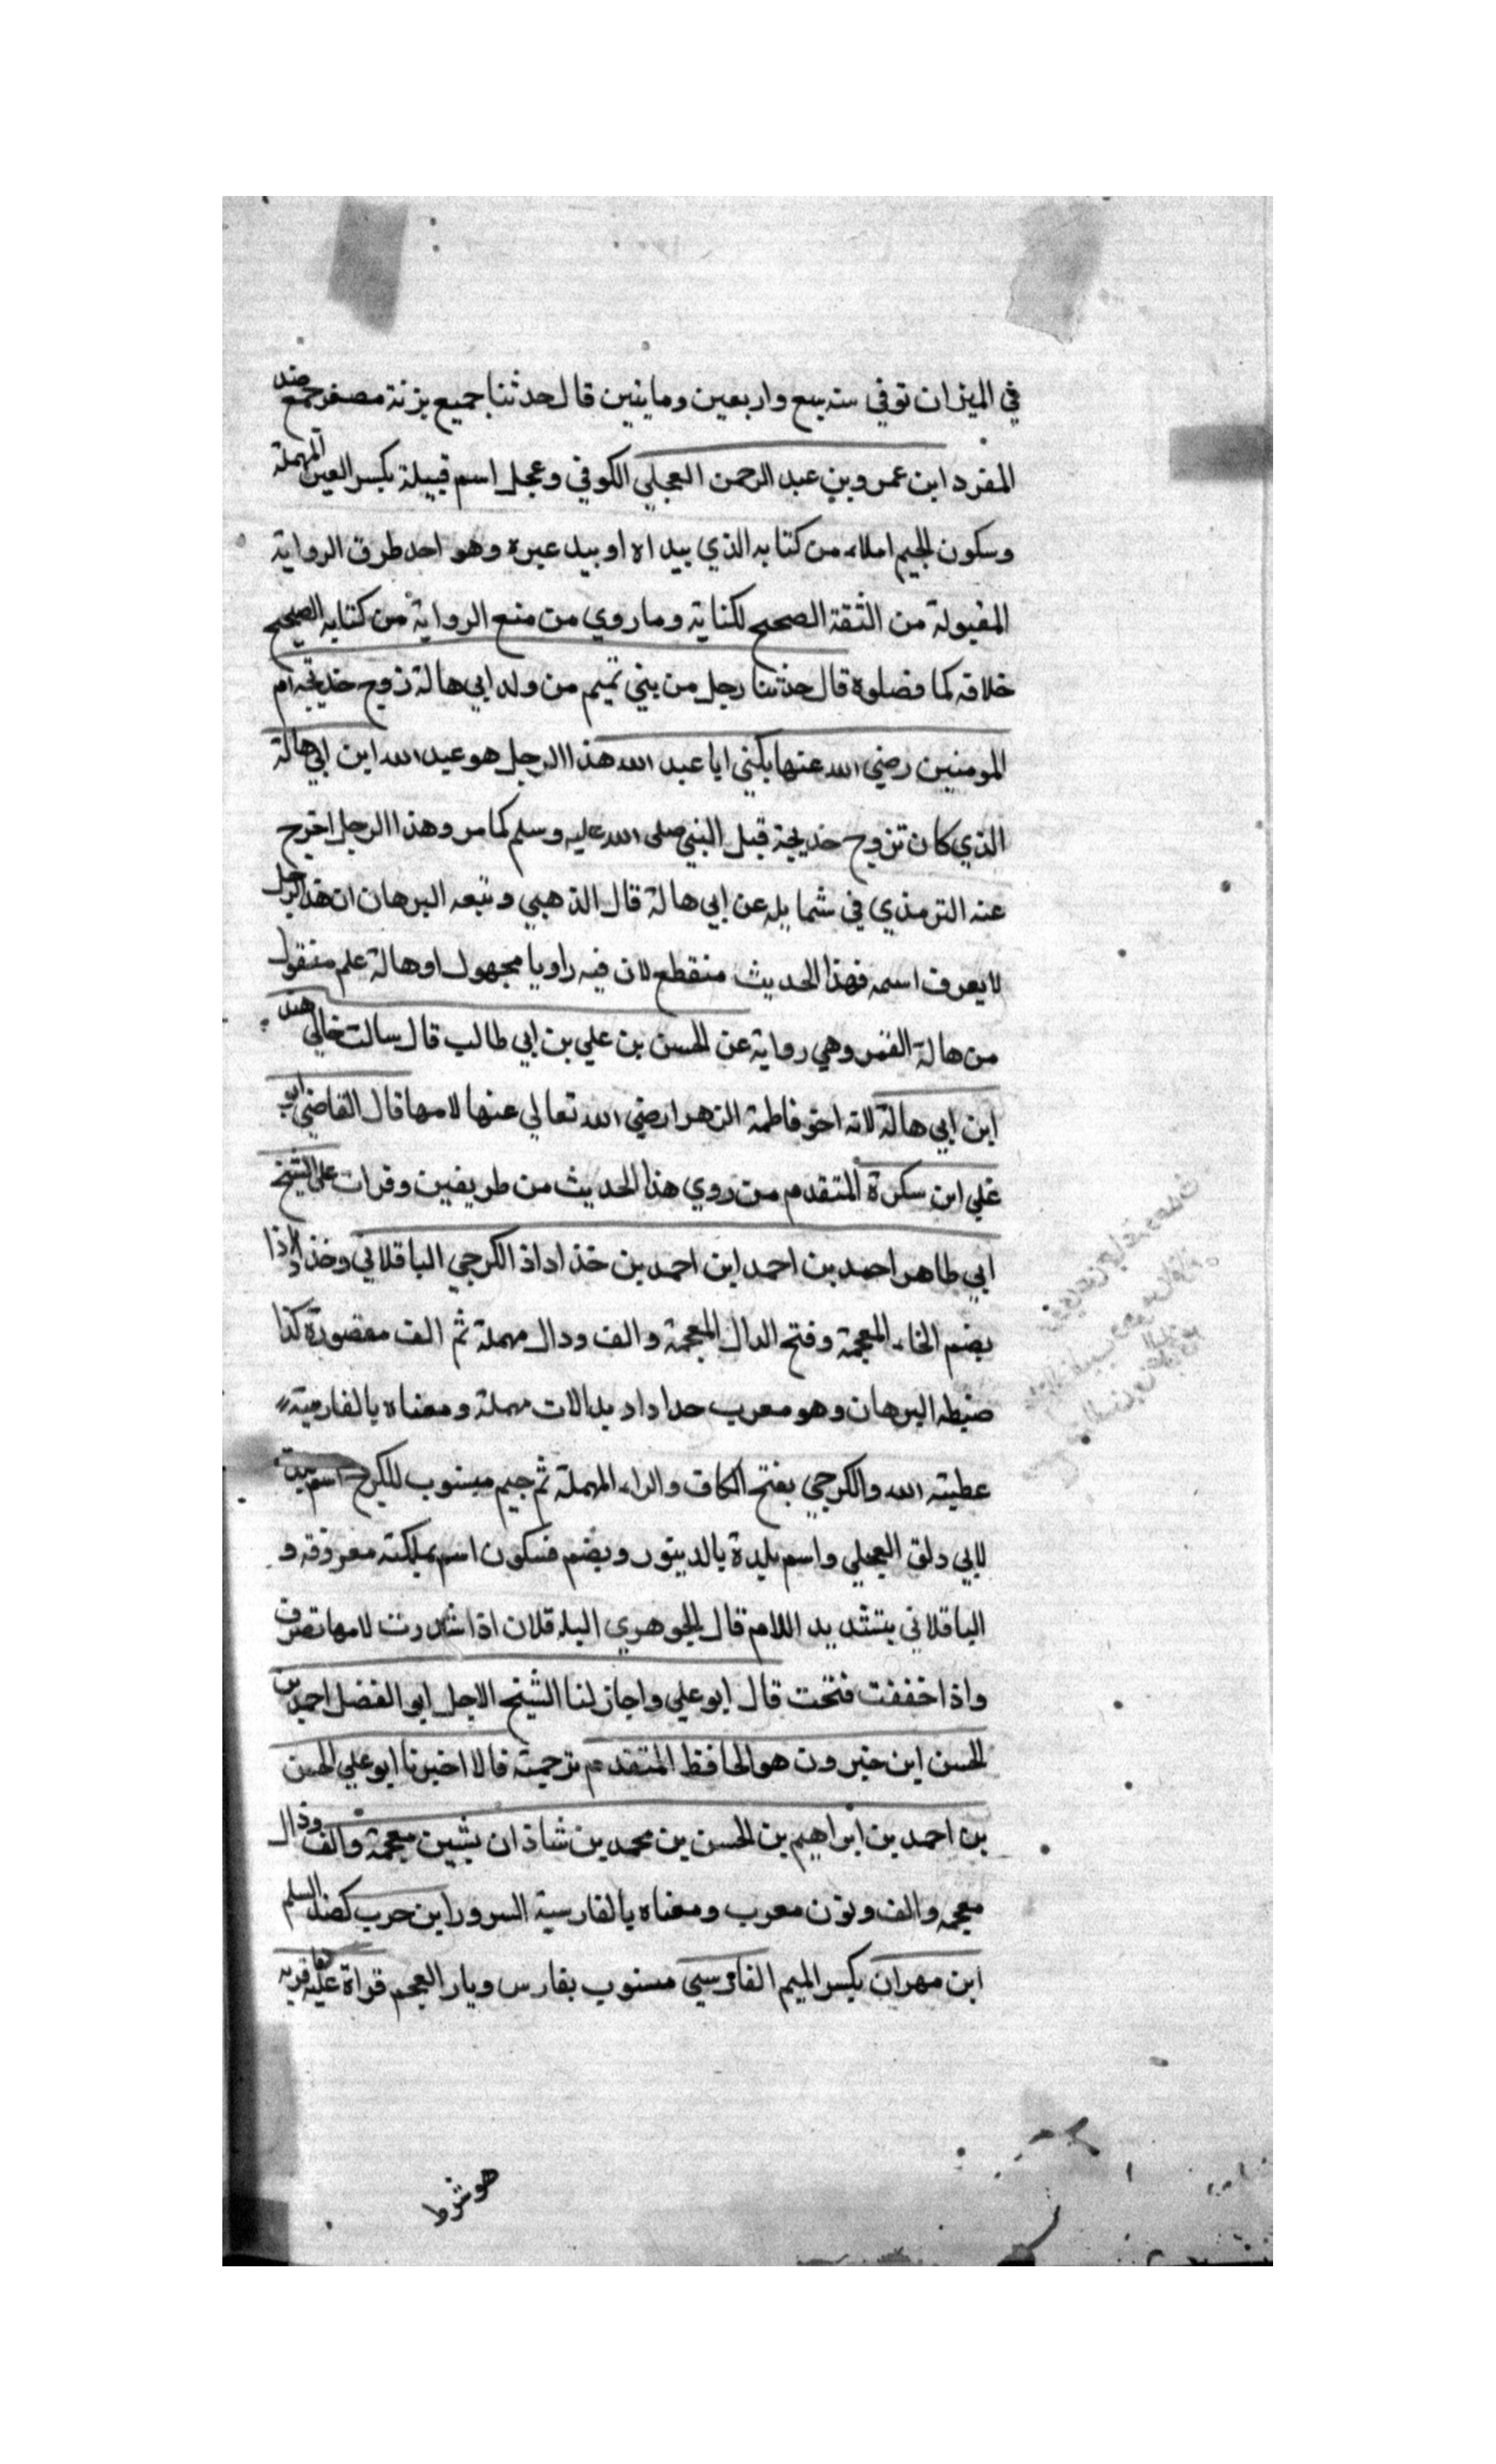 في الميزان توفي سنة سبع واربعين ومايتين قال حدثنا جميع بزنة مصغر جمع ضد
المفرد ابن عمرو بن عبد الرحمن العجلي الكوفي وعجل اسم قبيلة بكسر العين المهملة
وسكون الجيم املاء من كتابه الذي بيداه او بيد غيره وهو احد طرق الرواية
المقبولة من الثقة الصحيح لكتابة وما روي من منع الرواية من كتابه الصحيح
خلافه كما فصلوه قال حدثنا رجل من بني تميم من ولد ابي هالة زوج خديجة ام
المومنين رضي الله عنها يكني ابا عبد الله هذا الرجل هو عبد الله ابن ابي هالة
الذي كان تزوج خديجة قبل النبي صلى الله عليه وسلم كما مر وهذا الرجل اخرج
عنه الترمذي في شمايله عن ابي هالة قال الذهبي وتبعه البرهان ان هذا الرجل
لا يعرف اسمه فهذا الحديث منقطع لان فيه راويا مجهول اوهالة علم منقول
من هالة القمر وهي رواية عن الحسن بن علي بن ابي طالب قال سالت خالي هند
ابن ابي هالة لانه اخو فاطمة الزهرا رضي الله تعالي عنها لامها قال القاضي ابو
علي ابن سكرة المتقدم من روي هذا الحديث من طريقين وقرات على الشيخ
ابي طاهر احمد بن احمد ابن احمد بن خذاداذ الكرجي الباقلاني وخذاداذا
بضم الخاء المعجمة وفتح الدال المعجمة والف ودال مهملة ثم الف مقصورة كذا
ضبطه البرهان وهو معرب حداداد بدالات مهملة ومعناه بالفارسية
عطيته الله والكرجي بفتح الكاف والراء المهملة ثم جيم مسنوب للكرج اسم مدينة
لابي دلق العجلي واسم بلدة بالدينور وبضم فسكون اسم مملكته معروفه و
الباقلاني بتشديد اللام قال الجوهري البلاقلان اذا شدرت لامها تصرف
واذا خففت فتحت قال ابو علي واجاز لنا الشيخ الاجل ابو الفضل احمد بن
الحسن ابن خيرون هو الحافظ المتقدم ترجمته قالا اخبرنا ابو علي الحسن
بن احمد بن ابراهيم بن الحسن بن محمد بن شاذان بشين معجمة والف وذال
معجمه والف ونون معرب ومعناه بالفارسية السرور ابن حرب كضد السلم
ابن مهران بكسر الميم الفارسي مسنوب بفارس وبار العجم قراة عليه فربه
هو شرط